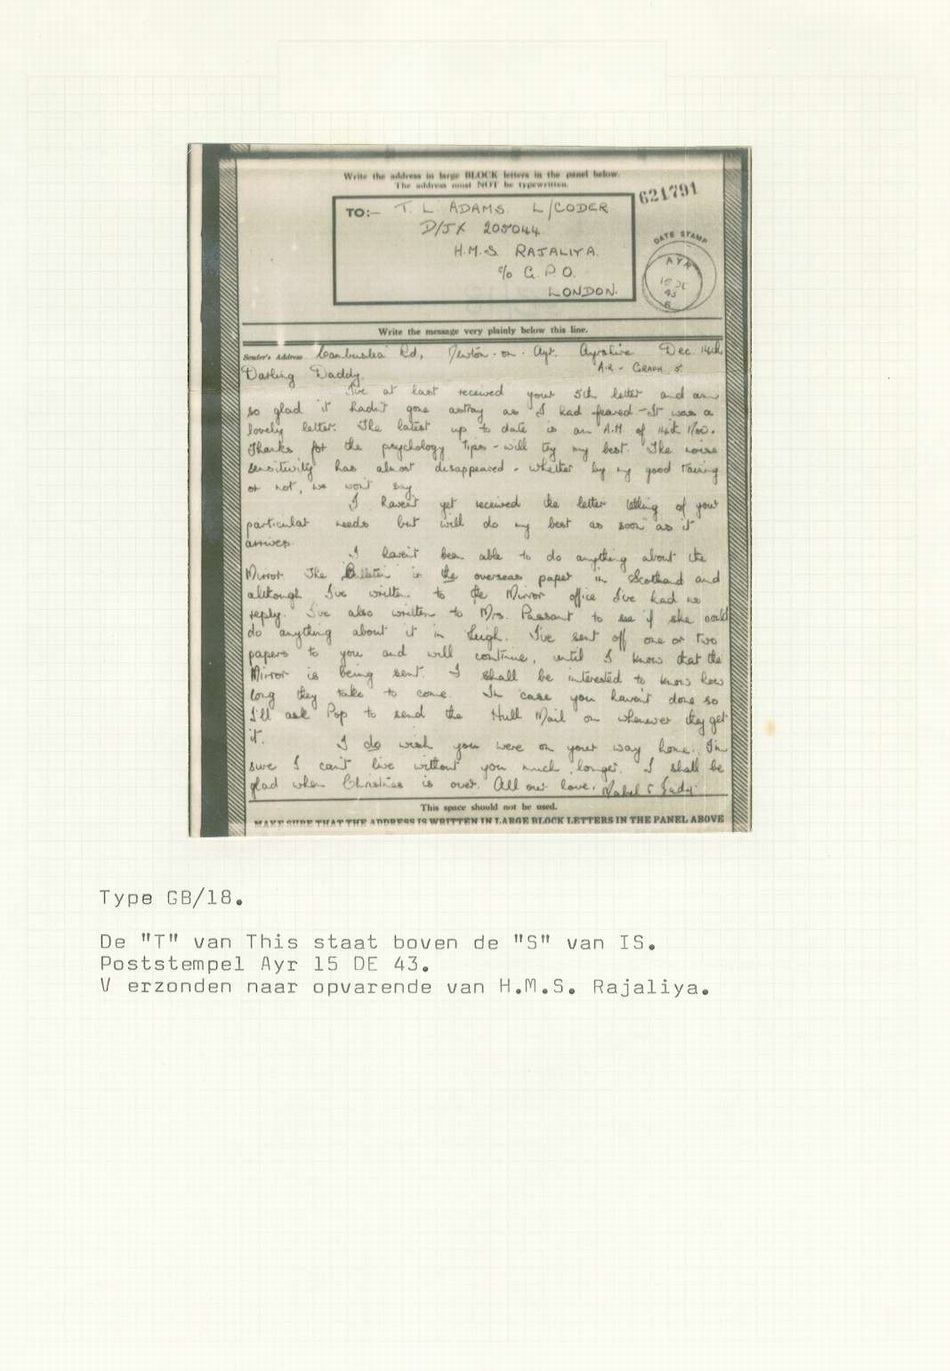 Write the address in large BLOCK letters in the panel below.
The address must NOT be typewritten.
621791
TO:— T. L. ADAMS L/CODER
D/JX 205044
H.M.S. RAJALIYA.
℅ G.P.O.
LONDON.
DATE STAMP
AYR
15 DE
43
Write the message very plainly below this line.
Sender's Address Rd, Newton-on-Ayr. Ayrshire Dec. 14th
Darling Daddy AIR-GRAPH 5.
I've at last received your 5th letter and am
so glad it hadn't gone astray as I had feared – It was a
lovely letter. The latest up to date is an A.M. of 14th
Thanks for the psychology tips – will try my best. The noise
sensitivity has almost disappeared – whether by my good
or not, we won't say.
I haven't yet received the letter telling of your
particular needs but will do my best as soon as it
arrives.
I haven't been able to do anything about the
Mirror. The Bulletin is the overseas paper in Scotland and
although I've written to the Mirror office I've had no
reply. I've also written to Mrs. Passant to see if she could
do anything about it in Leigh. I've sent off one or two
papers to you and will continue, until I know that the
Mirror is being sent. I shall be interested to know how
long they take to come. In case you haven't done so
I'll ask Pop to send the Hull Mail on whenever they get
it.
I do wish you were on your way home. I'm
sure I can't live without you much longer. I shall be
glad when Christmas is over. All our love,
This space should not be used.
MAKE SURE THAT THE ADDRESS IS WRITTEN IN LARGE BLOCK LETTERS IN THE PANEL ABOVE
Type GB/18.
De "T" van This staat boven de "S" van IS.
Poststempel Ayr 15 DE 43.
V erzonden naar opvarende van H.M.S. Rajaliya.